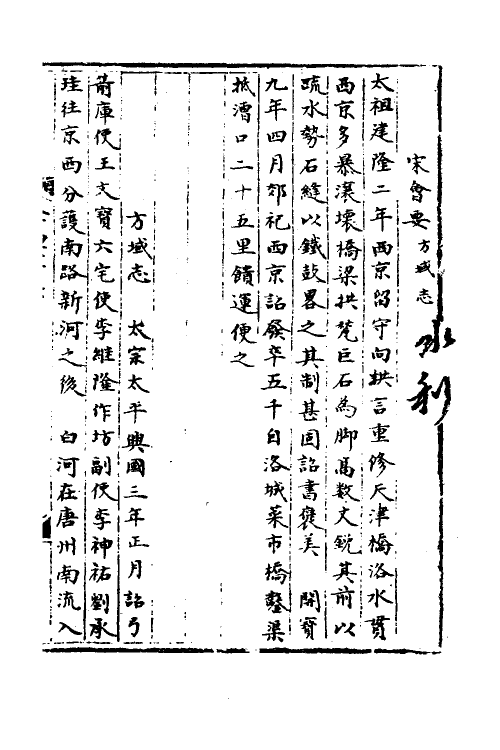 宋會要方域志
水利
太祖建隆二年西京留守向拱言重修天津橋洛水貫
西京多暴漲壞橋梁拱甃巨石為脚髙数丈銳其前以
疏水勢石縫以鐵鼓畧之其制甚固詔書褒美　開寶
九年四月郊祀西京詔發卒五千自洛城菜市橋鑿渠
抵漕口二十五里饋運便之
方域志　太宗太平興國三年正月詔弓
箭庫使王文寶六宅使李繼隆作坊副使李神祐劉承
珪往京西分護南路新河之役　白河在唐州南流入